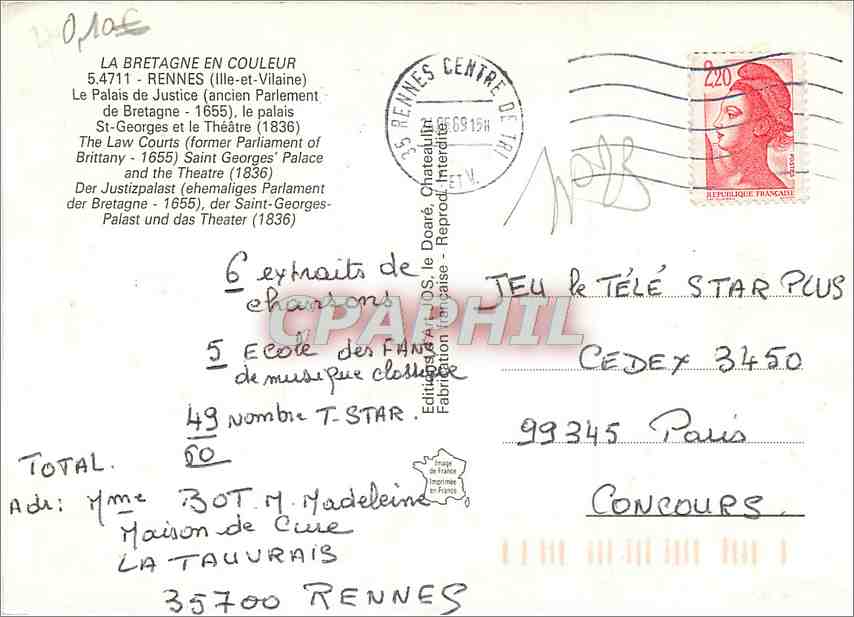 0,10€
LA BRETAGNE EN COULEUR
5.4711 - RENNES (Ille-et-Vilaine)
Le Palais de Justice (ancien Parlement
de Bretagne - 1655), le palais
St-Georges et le Théâtre (1836)
The Law Courts (former Parliament of
Brittany - 1655) Saint Georges' Palace
and the Theatre (1836)
Der Justizpalast (ehemaliges Parlament
der Bretagne - 1655), der Saint-Georges-
Palast und das Theater (1836)
35 RENNES CENTRE DE TRI
ET V.
2,20
POSTES
REPUBLIQUE FRANÇAISE
Editions d'Art JOS, le Doaré, Chateaulin
Fabrication française - Reprod. Interdite
CPAPHIL
6 extraits de
chansons
5 Ecole des FANS
de musique classique
49 Nombre T-STAR.
60
TOTAL.
Adr: Mme BOT. M. Madeleine
Maison de Cure
LA TAUVRAIS
35700 RENNES
Image
de France
Imprimée
en France
JEU le TÉLÉ STAR PLUS
CEDEX 3450
99345 Paris
CONCOURS.